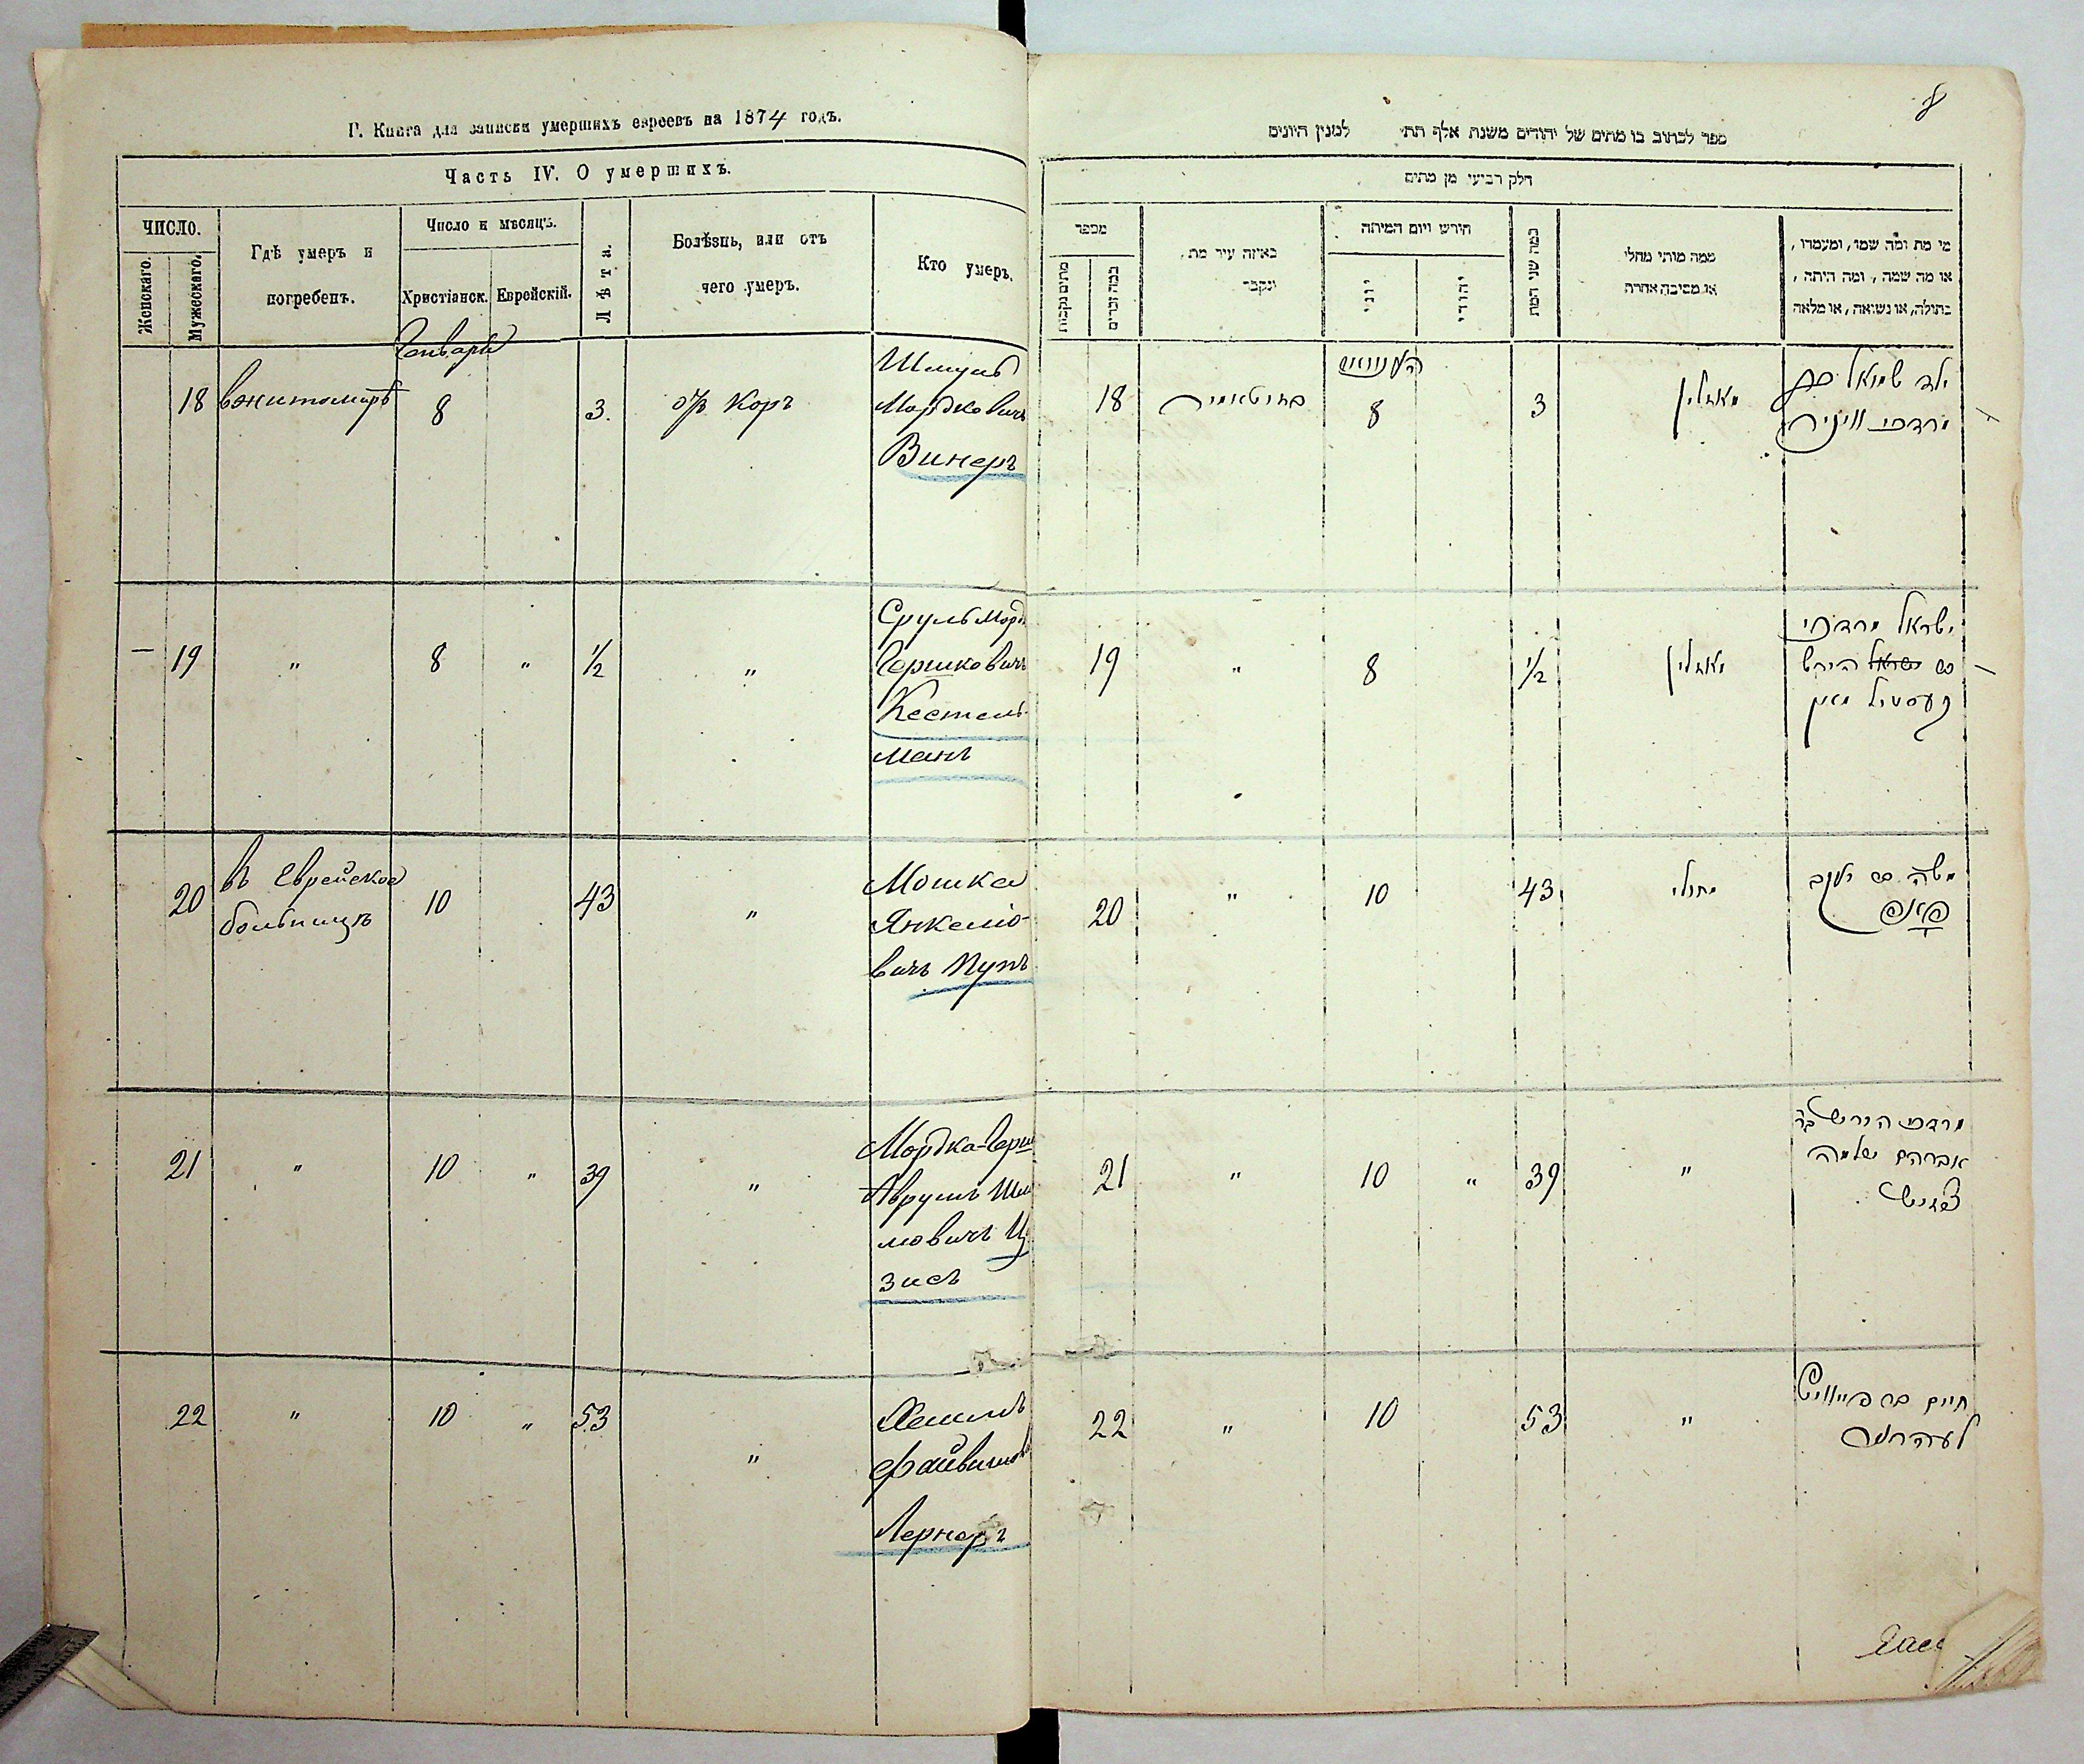 Г. Книга для записки умершихъ евреевъ на 1874 годъ.
Часть IV. О умершихъ.
ЧИСЛО.
Женскаго.
Мужескаго.
Гдѣ умеръ и
погребенъ.
Число и мѣсяцъ.
Христіанск.
Еврейскій.
Лѣта.
Болѣзнь, или отъ
чего умеръ.
Кто умеръ.
Января
18 вжитомирѣ 8 3. отъ Коръ
Шмуль
Мордковичъ
Винеръ
— 19 " 8 " 1/2 "
Сруль Морд
Гершковичъ
Кестель-
манъ
20 въ Еврейской
больницѣ 10 43 "
Мошка
Янкеліо-
вичъ Пупъ
21 " 10 " 39 "
Мордка-Герш
Аврумъ Шл
мовичъ Ц
зисъ
22 " 10 " 53 "
Файвишов
Лернеръ
8
ספר לכתוב בו מתים של יהודים משנת אלף תת׳ למנין היונים
חלק רביעי מן מתים
מספר
מתים נקבות
כמה זכרים
באיזה עיר מת
ונקבר
חורש ויום המיתה
יוני
יהודי
כמה שני המת
ממה מותי מחלי
או מסיבה אחרת
מי מת ומה שמו, ומעמדו,
או מה שמה, ומה היתה,
בתולה, או נשואה, או מלאה
18 8 3 מאזלין
ילד שמואל בן
מרדכי ווינער
19 " 8 1/2 מאזלין
ישראל מרדכי
בן ישראל הירש
קעסטיל מאן
20 " 10 43 מחולי
משה בן יעקב
פאפ
21 " 10 " 39 "
מרדכי הירש בר
אברהם שלמה
22 " 10 53 "
חיים בר פייוויש
לערנער